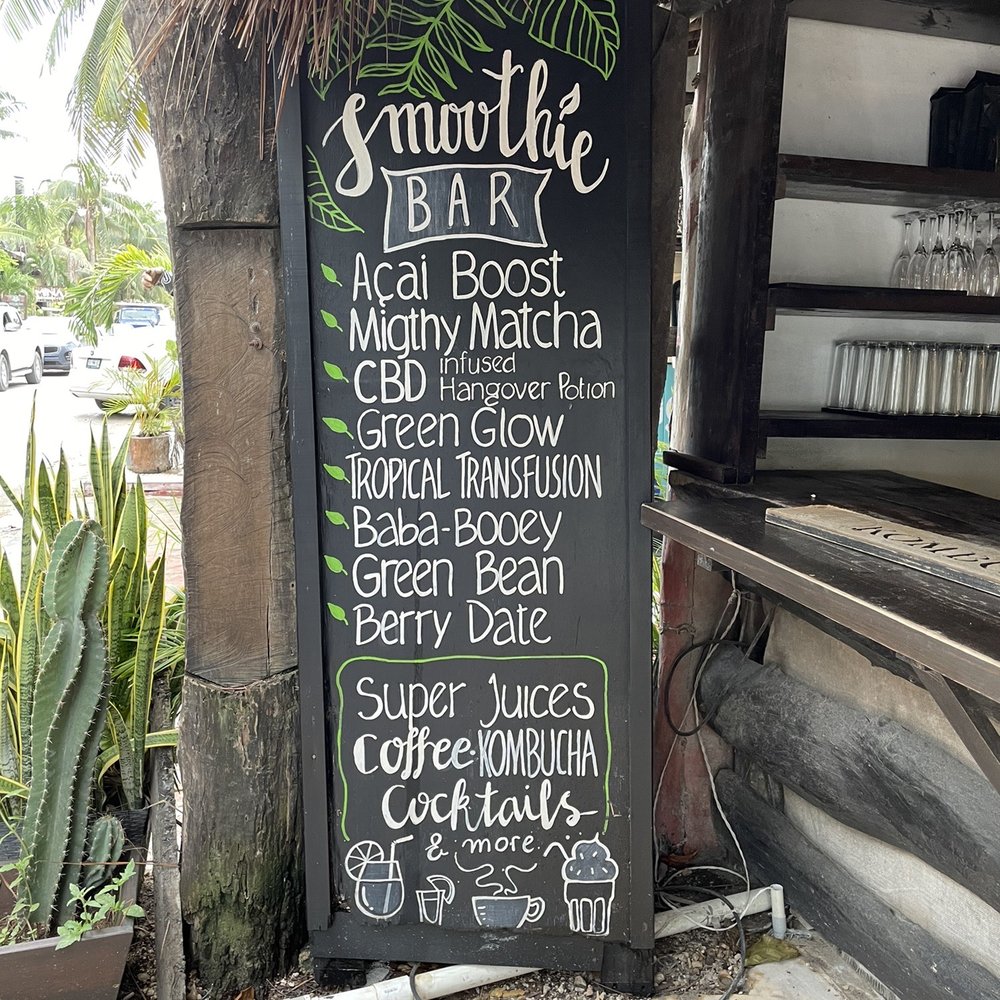 Smoothie
BAR
Açai Boost
Migthy Matcha
CBD infused
Hangover Potion
Green Glow
TROPICAL TRANSFUSION
Baba-Booey
Green Bean
Berry Date
Super Juices
Coffee·KOMBUCHA
Cocktails
& more